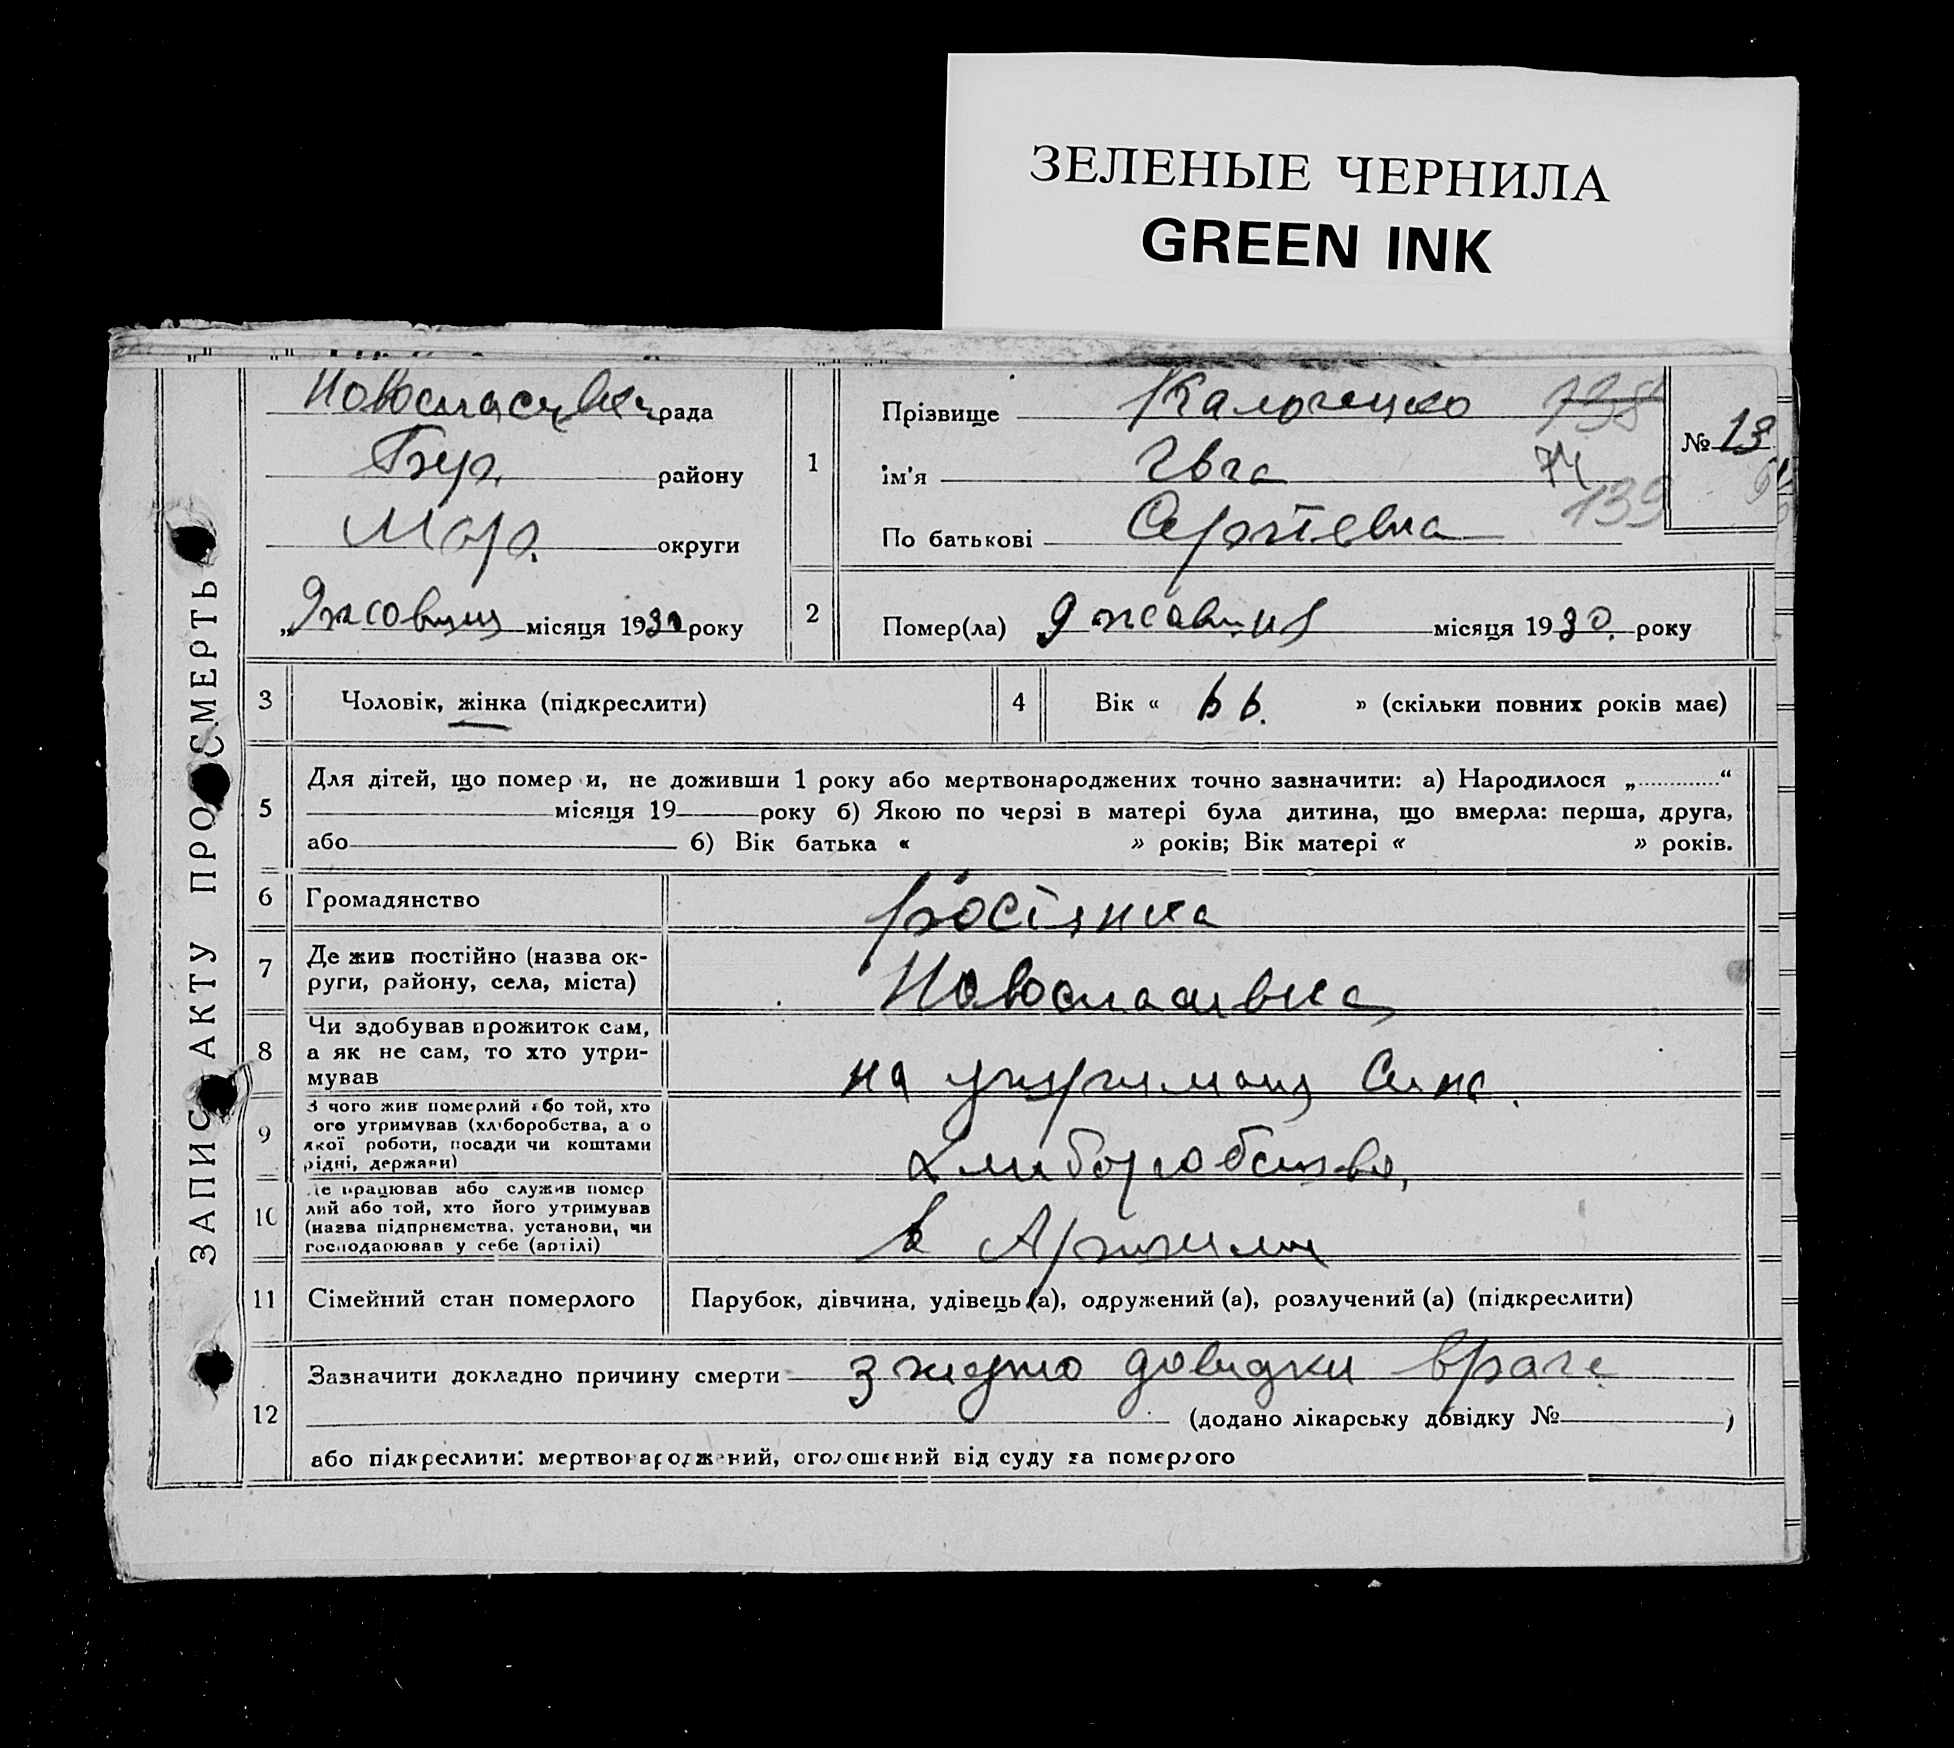 ЗЕЛЕНЫЕ ЧЕРНИЛА
GREEN INK
ЗАПИС АКТУ ПРО СМЕРТЬ
рада
Бер. району
Мар. округи
„9 жовтня місяця 1930 року
1
Прізвище
738
ім'я
74
По батькові Сергіевна
139
№ 13
2
Помер(ла) 9 жовтня місяця 1930. року
3
Чоловік, жінка (підкреслити)
4
Вік « 66. » (скільки повних років має)
5
Для дітей, що помер и, не доживши 1 року або мертвонароджених точно зазначити: а) Народилося „ “
місяця 19 року б) Якою по черзі в матері була дитина, що вмерла: перша, друга,
або б) Вік батька « » років; Вік матері « » років.
6
Громадянство росіянка
7
Де жив постійно (назва ок-
руги, району, села, міста)
Новоспасівка
8
Чи здобував прожиток сам,
а як не сам, то хто утри-
мував
на утриманні сина.
9
З чого жив померлий або той, хто
ого утримував (хліборобства, а о
якої роботи, посади чи коштами
рідні, держави)
хлиборобство,
10
Де працював або служив помер
лий або той, хто його утримував
(назва підприємства, установи, чи
господарював у себе (артілі)
в Артили
11
Сімейний стан померлого
Парубок, дівчина, удівець (а), одружений (а), розлучений (а) (підкреслити)
12
Зазначити докладно причину смерти згидно довидки врача
(додано лікарську довідку № )
або підкреслити: мертвонароджений, оголошений від суду за померлого